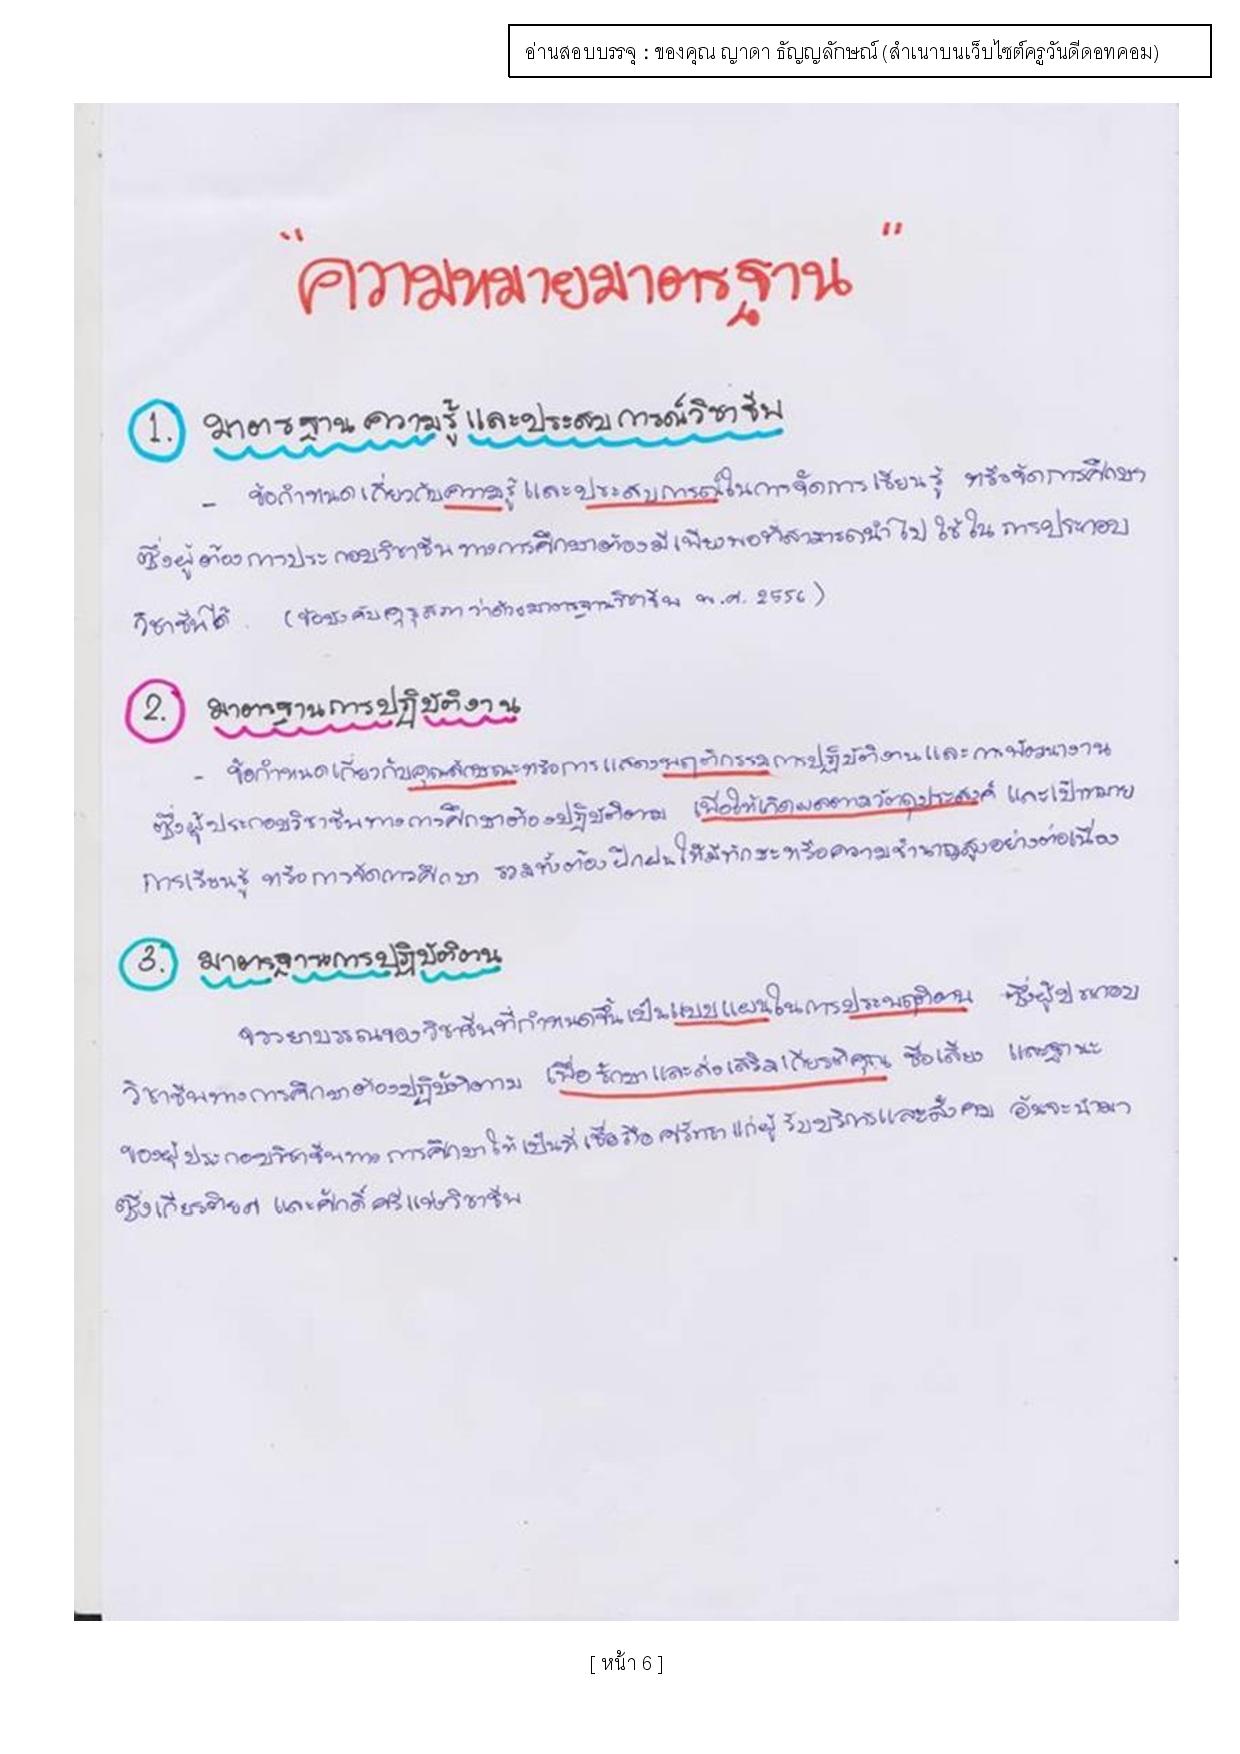 อ่านสอบบรรจุ : ของคุณ ญาดา ธัญญลักษณ์ (สำเนาบนเว็บไซต์ครูวันดีดอทคอม)
"ความหมายมาตรฐาน"
1. มาตรฐานความรู้และประสบการณ์วิชาชีพ
- ข้อกำหนดเกี่ยวกับความรู้และประสบการณ์ในการจัดการเรียนรู้ หรือจัดการศึกษา
ซึ่งผู้ต้องการประกอบวิชาชีพทางการศึกษาต้องมีเพียงพอที่สามารถนำไปใช้ในการประกอบ
วิชาชีพได้ (ข้อบังคับคุรุสภาว่าด้วยมาตรฐานวิชาชีพ พ.ศ. 2556)
2. มาตรฐานการปฏิบัติงาน
- ข้อกำหนดเกี่ยวกับคุณลักษณะหรือการแสดงพฤติกรรมการปฏิบัติงานและการพัฒนางาน
ซึ่งผู้ประกอบวิชาชีพทางการศึกษาต้องปฏิบัติตาม เพื่อให้เกิดผลตามวัตถุประสงค์ และเป้าหมาย
การเรียนรู้ หรือการจัดการศึกษา รวมทั้งต้องฝึกฝนให้มีทักษะหรือความชำนาญสูงอย่างต่อเนื่อง
3. มาตรฐานการปฏิบัติตน
จรรยาบรรณของวิชาชีพที่กำหนดขึ้นเป็นแบบแผนในการประพฤติตน ซึ่งผู้ประกอบ
วิชาชีพทางการศึกษาต้องปฏิบัติตาม เพื่อรักษาและส่งเสริมเกียรติคุณ ชื่อเสียง และฐานะ
ของผู้ประกอบวิชาชีพทางการศึกษาให้เป็นที่เชื่อถือศรัทธาแก่ผู้รับบริการและสังคม อันจะนำมา
ซึ่งเกียรติยศ และศักดิ์ศรีแห่งวิชาชีพ
[ หน้า 6 ]